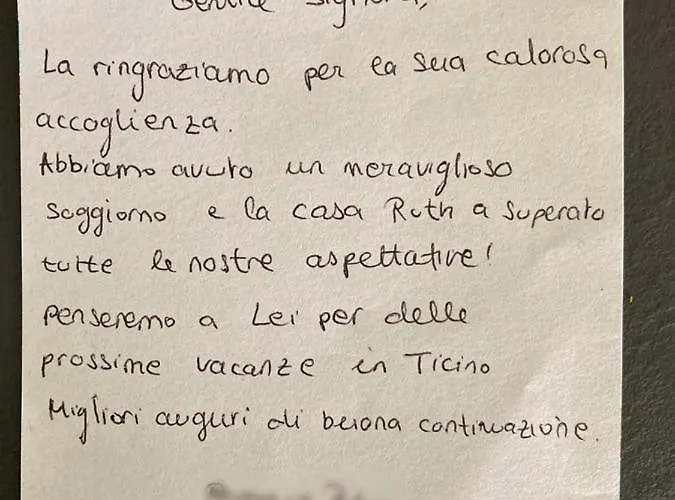 Gentile Signora,
La ringraziamo per la sua calorosa
accoglienza.
Abbiamo avuto un meraviglioso
soggiorno e la casa Ruth a superato
tutte le nostre aspettative!
penseremo a Lei per delle
prossime vacanze in Ticino
Migliori auguri di buona continuazione.